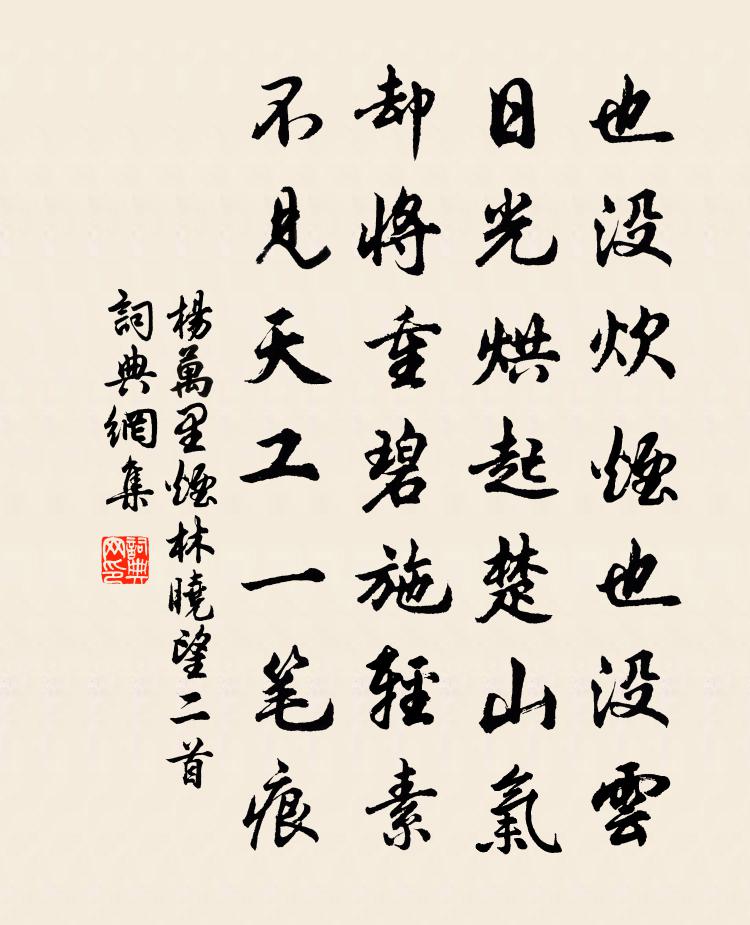 也没炊煙也没雲
日光烘起楚山氣
却將重碧施輕素
不見天工一笔痕
楊萬里煙林曉望二首
詞典網集
詞典网印